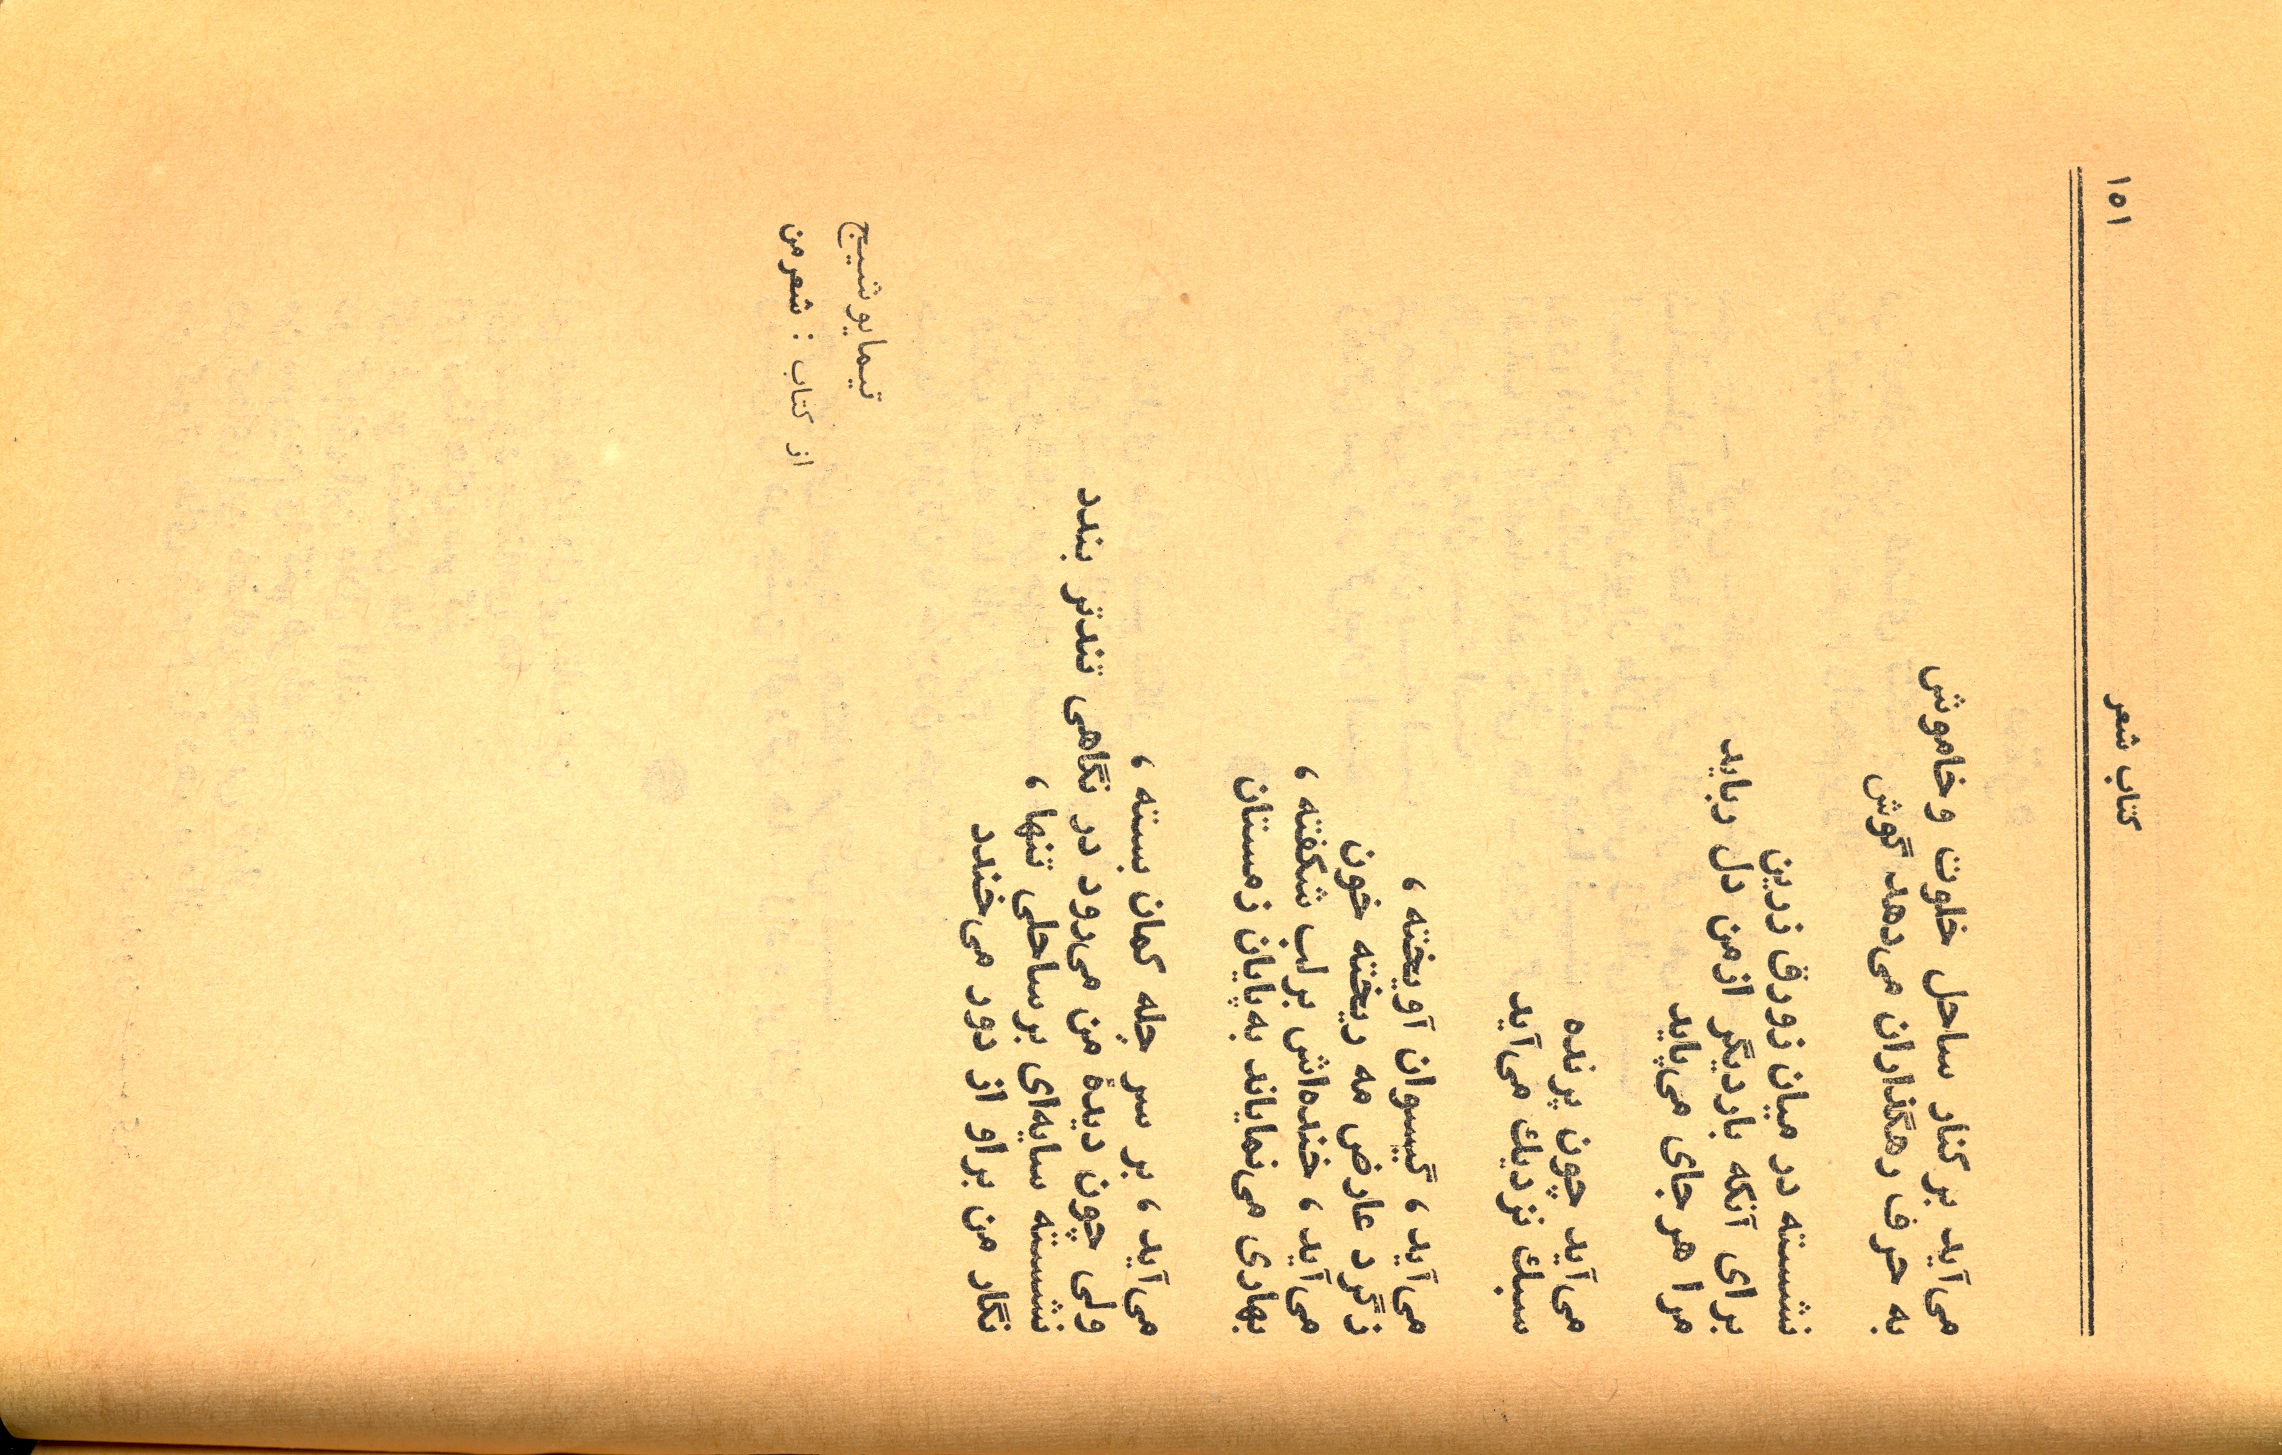 کتاب شعر
۱۵۱
می‌آید بر کنار ساحل خلوت و خاموش
به حرف رهگذاران می‌دهد گوش
نشسته در میان زورق زرین
برای آنکه بار دیگر از من دل رباید،
مرا هر جای می‌پاید
می‌آید چون پرنده
سبك نزدیك می‌آید
می‌آید، گیسوان آویخته،
ز گرد عارض مه ریخته خون
می‌آید، خنده‌اش بر لب شکفته،
بهاری می‌نمایاند به پایان زمستان
می‌آید، بر سر چله کمان بسته،
ولی چون دیدهٔ من می‌رود در نگاهی تندتر بندد
نشسته سایه‌ای بر ساحلی تنها،
نگار من بر او از دور می‌خندد
نیما یوشیج
از کتاب : شعر من